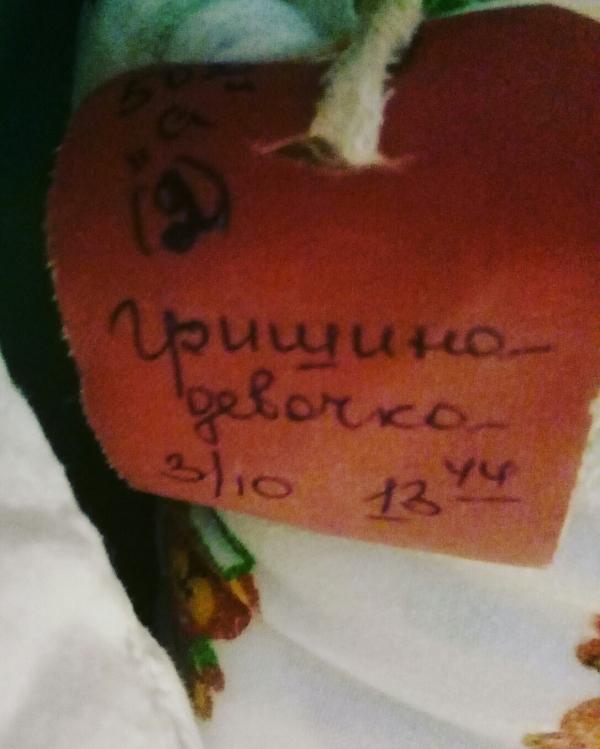 Гришина
девочка
3/10 13 44